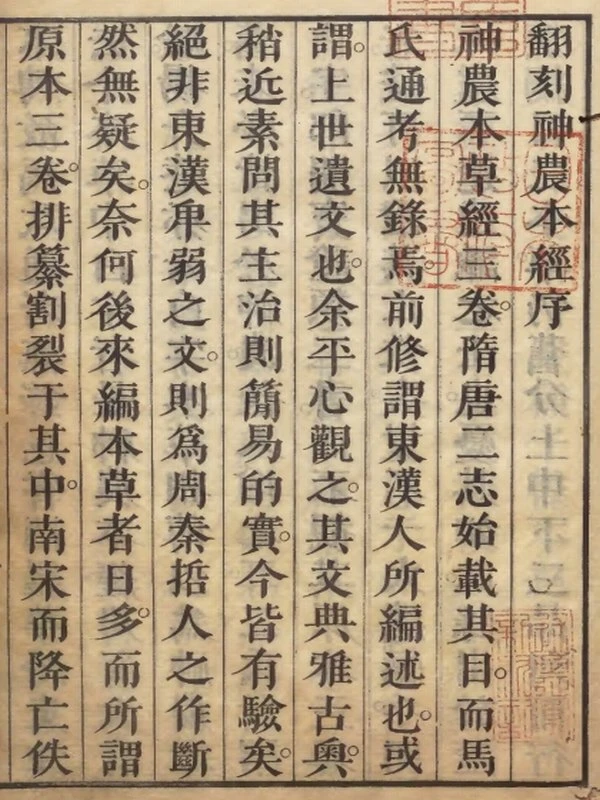 翻刻神農本經序
神農本草經三卷。隋唐二志始載其目。而馬
氏通考無錄焉。前修謂東漢人所編述也。或
謂。上世遺文也。余平心觀之。其文典雅古奧。
稍近素問其主治則簡易的實。今皆有驗矣。
絕非東漢卑弱之文。則為周秦哲人之作斷
然無疑矣。奈何後來編本草者日多。而所謂
原本三卷。排纂割裂于其中。南宋而降亡佚